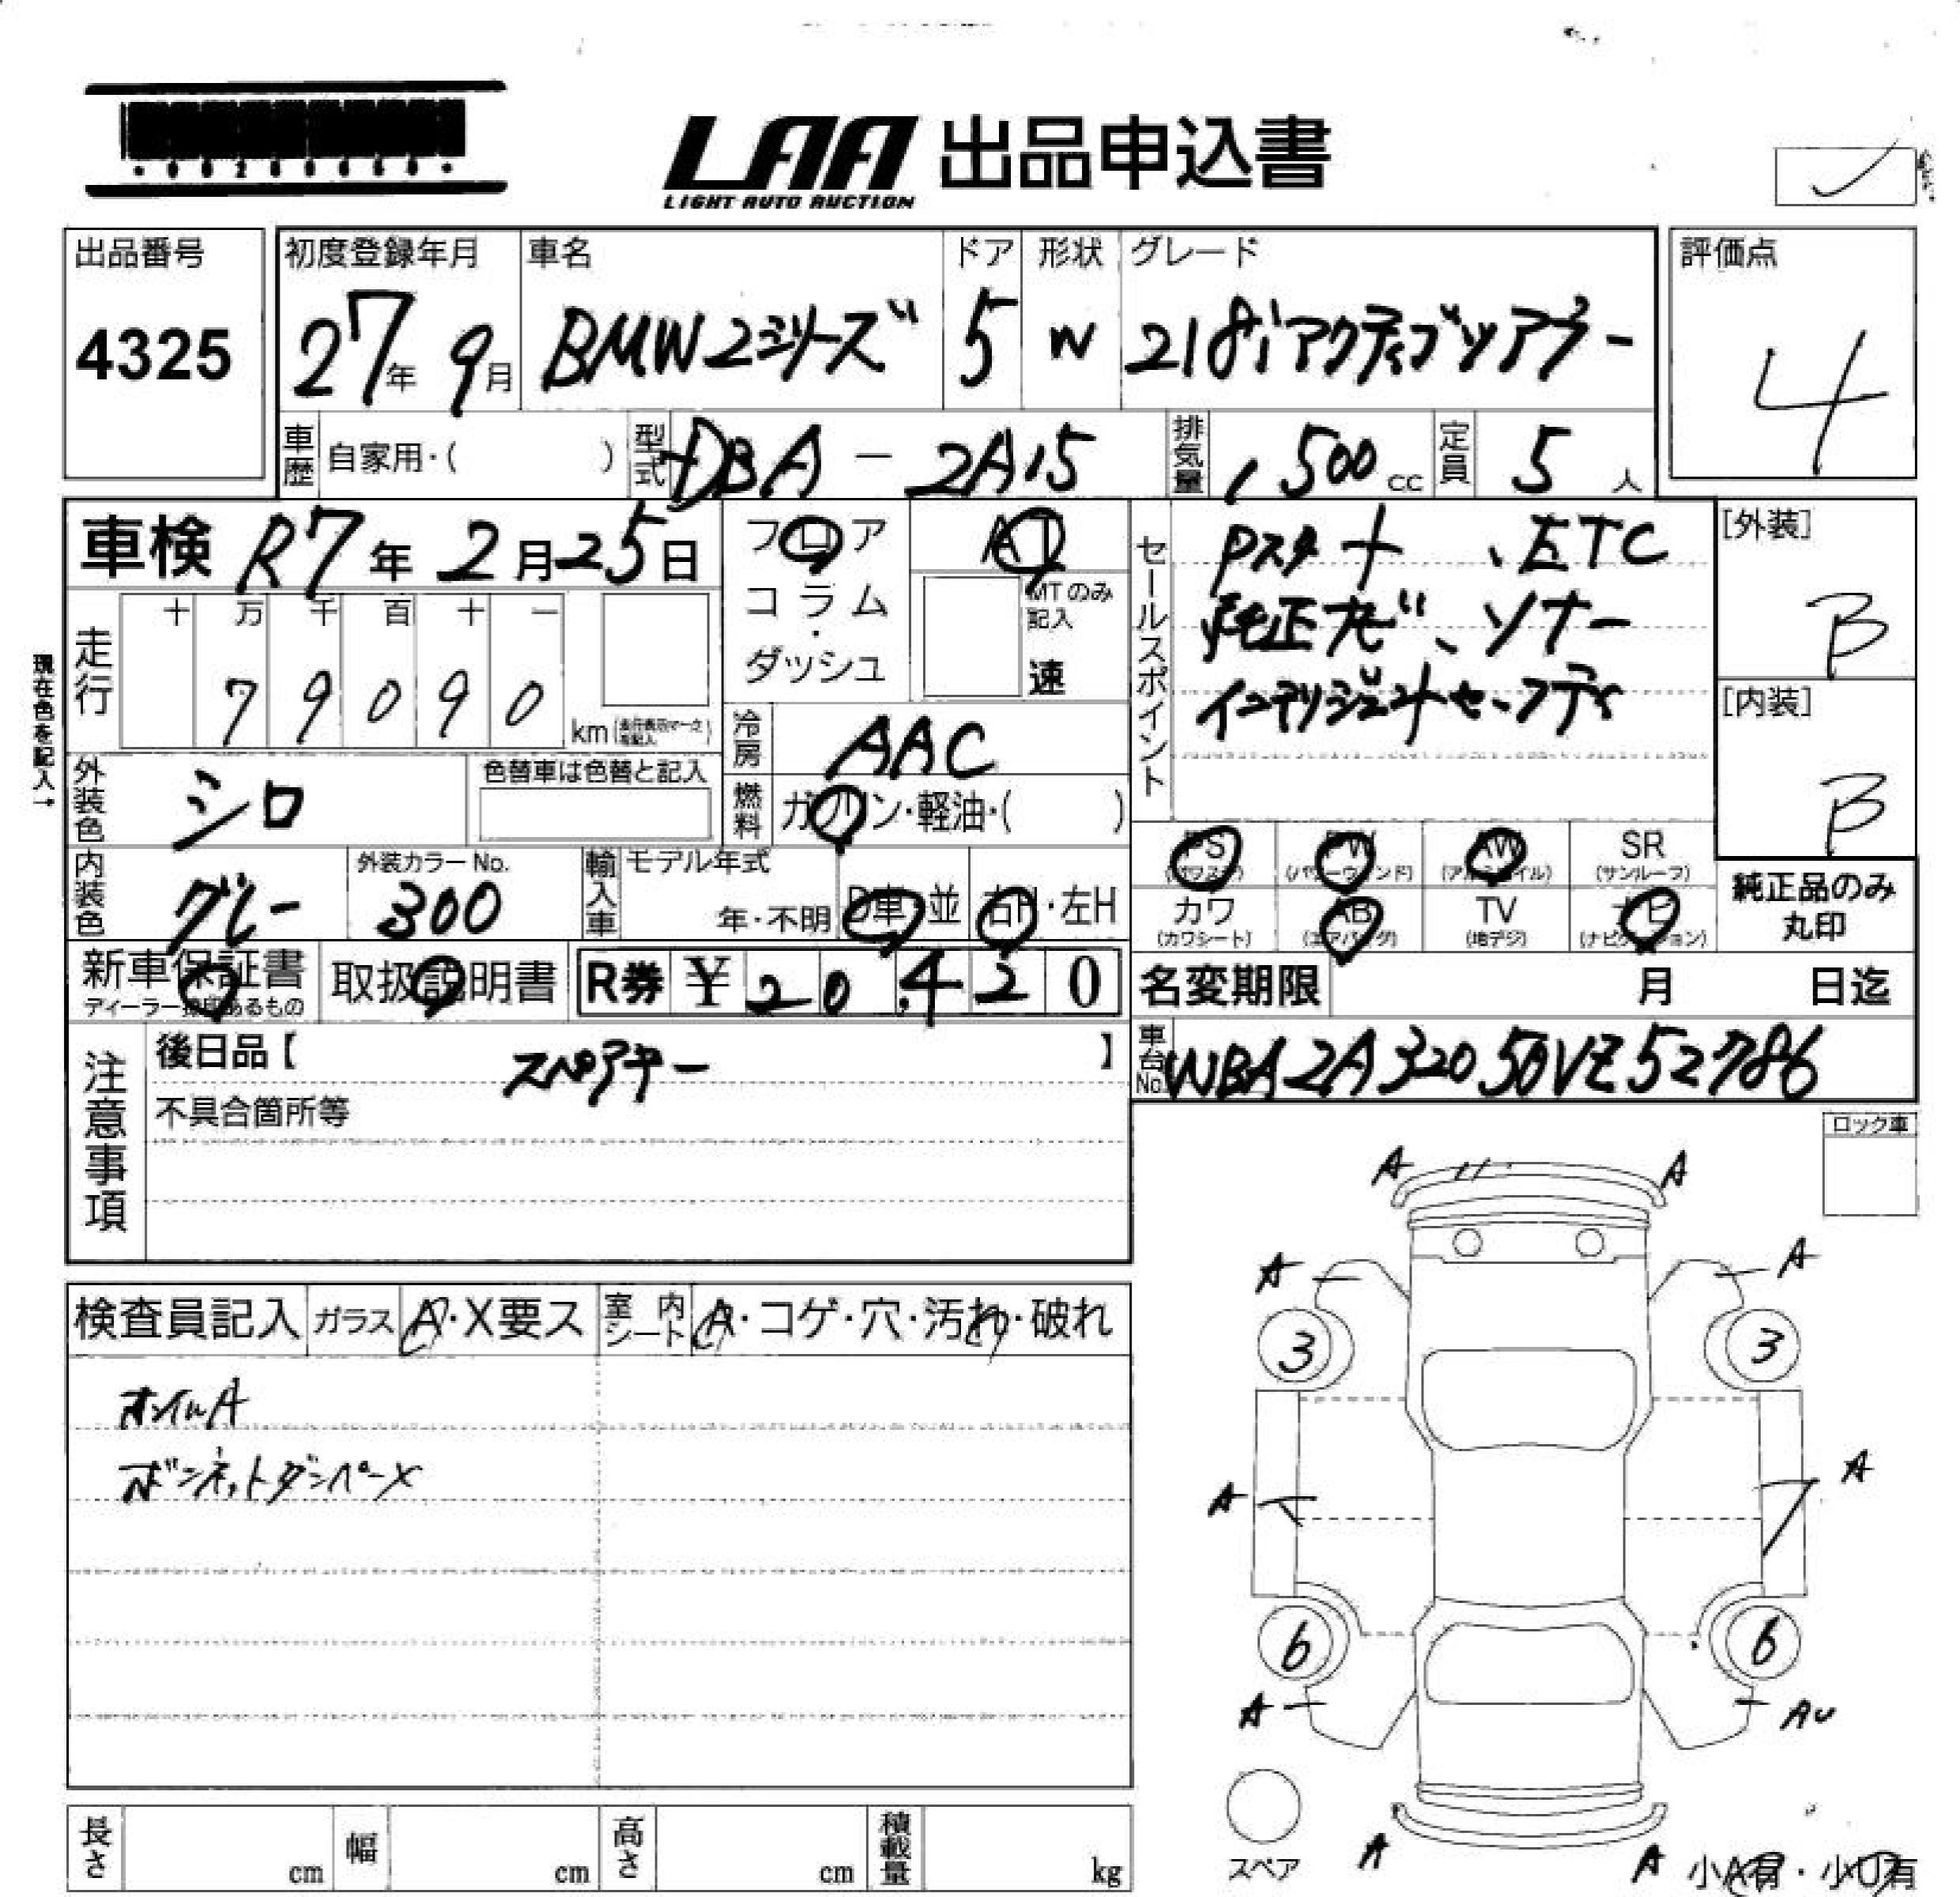 LAA 出品申込書
LIGHT AUTO AUCTION
出品番号 初度登録年月 車名 ドア 形状 グレード 評価点
4325 27年 9月 BMW2シリーズ 5 W 218iアクティブツアラー 4
車歴 自家用・( ) 型式 DBA - 2A15 排気量 1,500cc 定員 5人
車検 R7年 2月25日 フロア AT セールスポイント Pスタート、ETC [外装]
コラム・ MTのみ記入 純正ナビ、ソナー B
ダッシュ 速 インテリジェントセーフティ
現在色を記入→
走行 十 万 千 百 十 一
79090 km
冷房 AAC [内装]
B
外装色 シロ 色替車は色替と記入 燃料 ガソリン・軽油・( )
PS (パワステ) PW (パワーウィンド) AW (アルミホイル) SR (サンルーフ)
内装色 グレー 外装カラーNo. 300 輸入車 モデル年式 年・不明 D車・並 右H・左H
カワ (カワシート) AB (エアバッグ) TV (地デジ) ナビ (ナビゲーション) 純正品のみ丸印
新車保証書 取扱説明書 R券 ¥ 20,420 名変期限 月 日迄
ディーラー捺印あるもの
注意事項 後日品【 スペアキー 】 車台No. WBA2A32050VZ52786
不具合箇所等
ロック車
A A
A A
検査員記入 ガラス A・X要ス 室内シート A・コゲ・穴・汚れ・破れ
3 3
ホイルA
ボンネットダンパーX
A A
6 6
A AU
スペア A A 小A有・小U有
長さ cm 幅 cm 高さ cm 積載量 kg